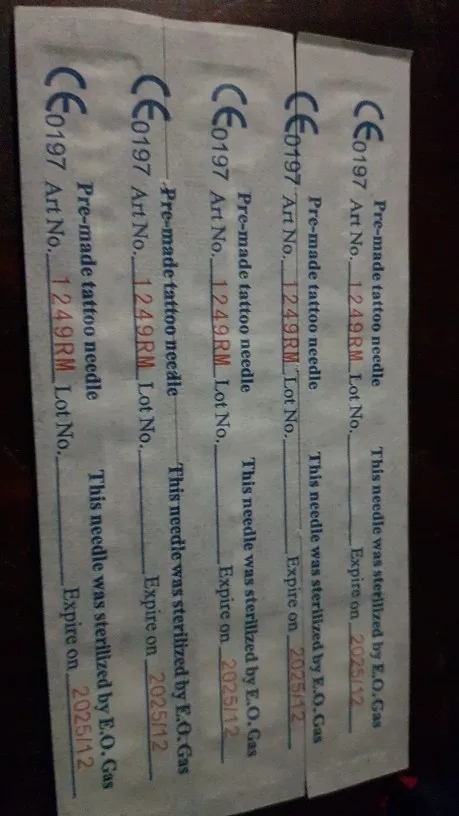 Pre-made tattoo needle This needle was sterilized by E.O. Gas
CE0197 Art No. 1249RM Lot No. Expire on 2025/12
Pre-made tattoo needle This needle was sterilized by E.O. Gas
CE0197 Art No. 1249RM Lot No. Expire on 2025/12
Pre-made tattoo needle This needle was sterilized by E.O. Gas
CE0197 Art No. 1249RM Lot No. Expire on 2025/12
Pre-made tattoo needle This needle was sterilized by E.O. Gas
CE0197 Art No. 1249RM Lot No. Expire on 2025/12
Pre-made tattoo needle This needle was sterilized by E.O. Gas
CE0197 Art No. 1249RM Lot No. Expire on 2025/12